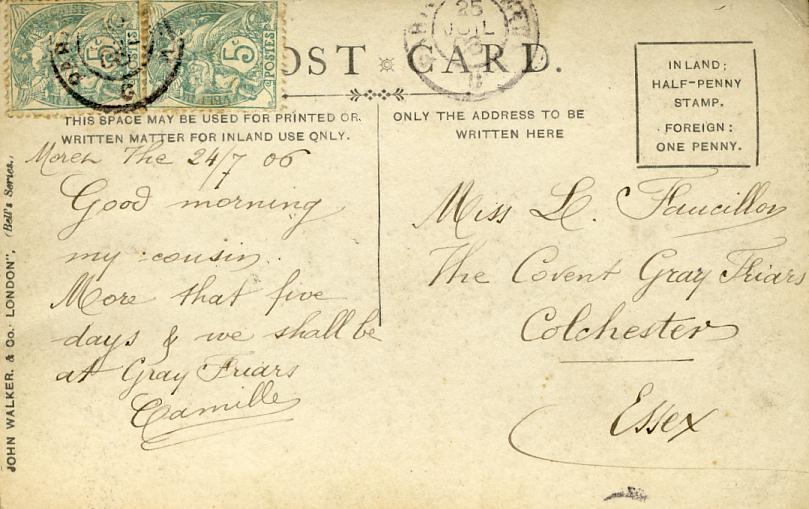 POST CARD.
25
JUIL
5c
5c
POSTES
THIS SPACE MAY BE USED FOR PRINTED OR
WRITTEN MATTER FOR INLAND USE ONLY.
ONLY THE ADDRESS TO BE
WRITTEN HERE
INLAND:
HALF-PENNY
STAMP.
FOREIGN:
ONE PENNY.
the 24/7 06
Good morning
my cousin.
More that five
days & we shall be
at Gray Friars
Camille
Miss L. Faucillon
The Covent Gray Friars
Colchester
Essex
JOHN WALKER. & Co. LONDON", (Bell's Series.)